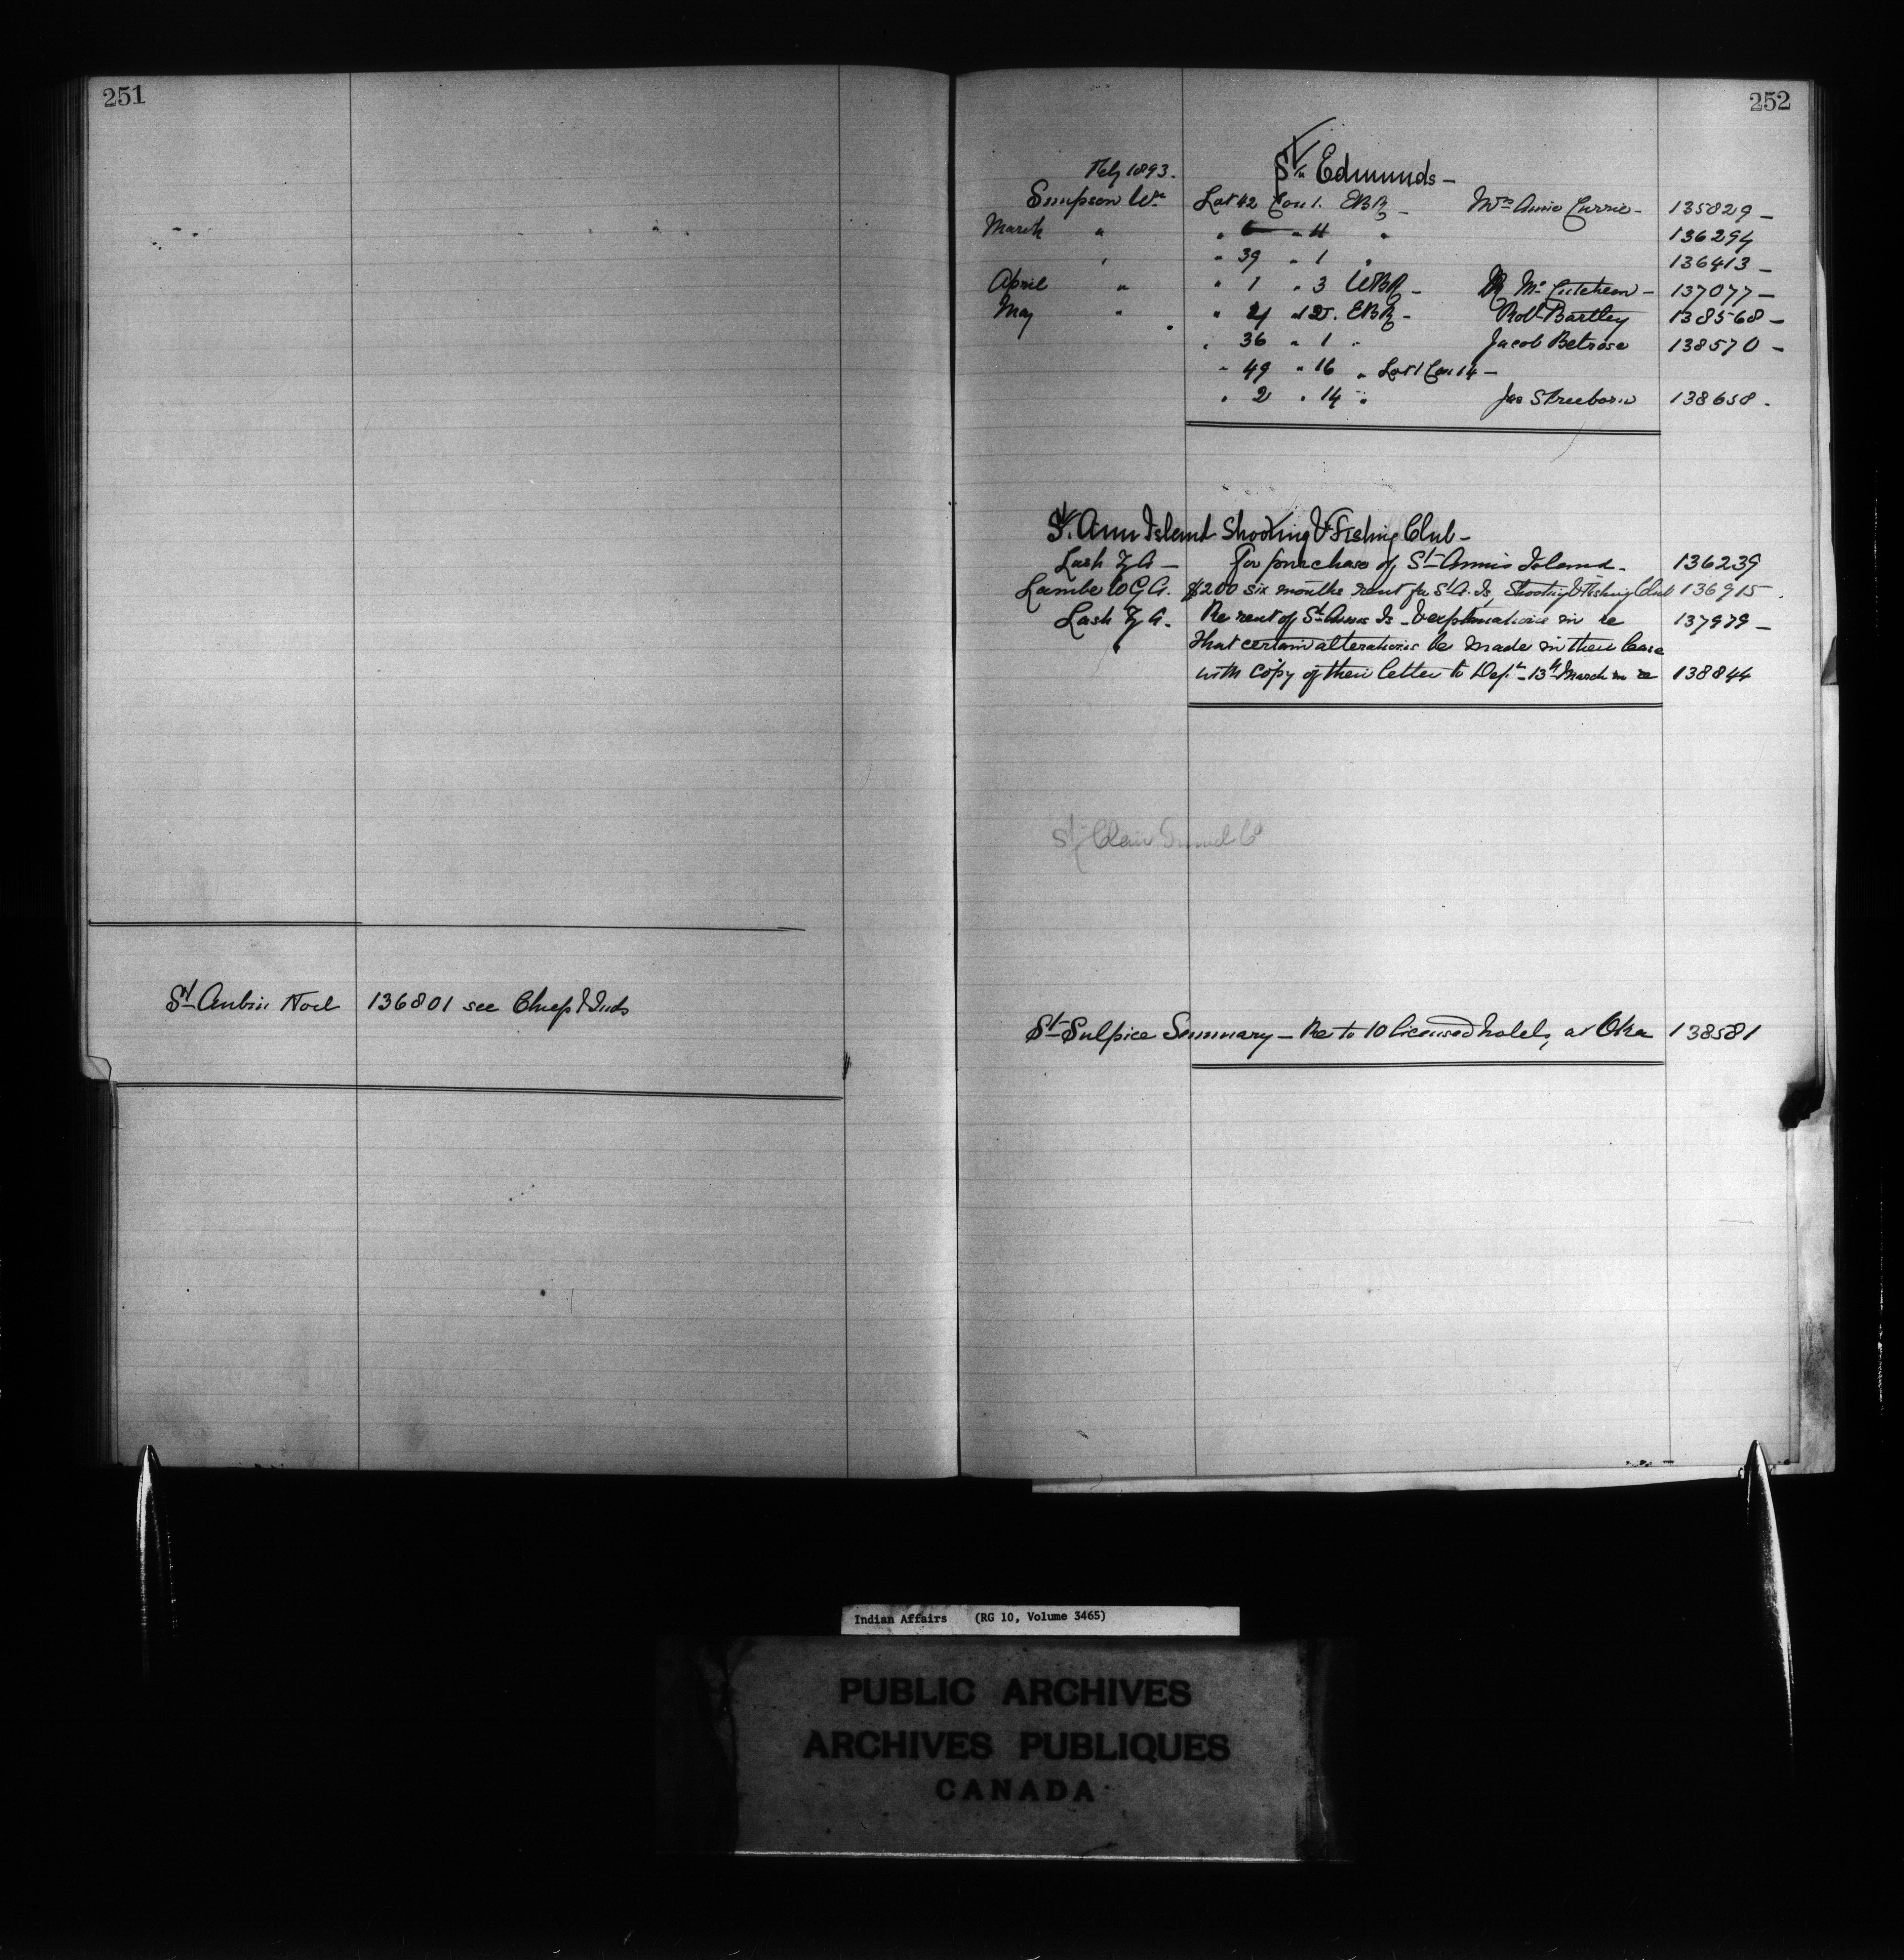 251
St Aubin Noel 136801 see Chiefs & Inds
252
St Edmunds -
Feby 1893.
Simpson Wm Lot 42 Con 1. EBR - Mrs Annie Currie - 135829 -
March " " 6 " 11 " 136294
" " 39 " 1 " 136413 -
April " " 1 " 3 WBR - McCutcheon - 137077 -
May " " 4 " 2 EBR - Robt Bartley 138568 -
" 36 " 1 " Jacob Belrose 138570 -
" 49 " 16 " Lot 1 Con 14 -
" 2 " 14 " Jas 138658 .
St. Ann Island Shooting & Fishing Club -
Lash Z A - For purchase of St Annes Island - 136239
Lambe W G A. $200 six months rent for St A. Is. Shooting & Fishing Club 136915 .
Lash Z A. Re rent of St Annes Is - & explanations in re 137979 -
That certain alterations be made in their lease
with copy of their letter to Dept - 13th March in re 138844
St Clair Tunnel Co
St Sulpice Seminary - Re to 10 licensed hotels at Oka 138581
Indian Affairs (RG 10, Volume 3465)
PUBLIC ARCHIVES
ARCHIVES PUBLIQUES
CANADA